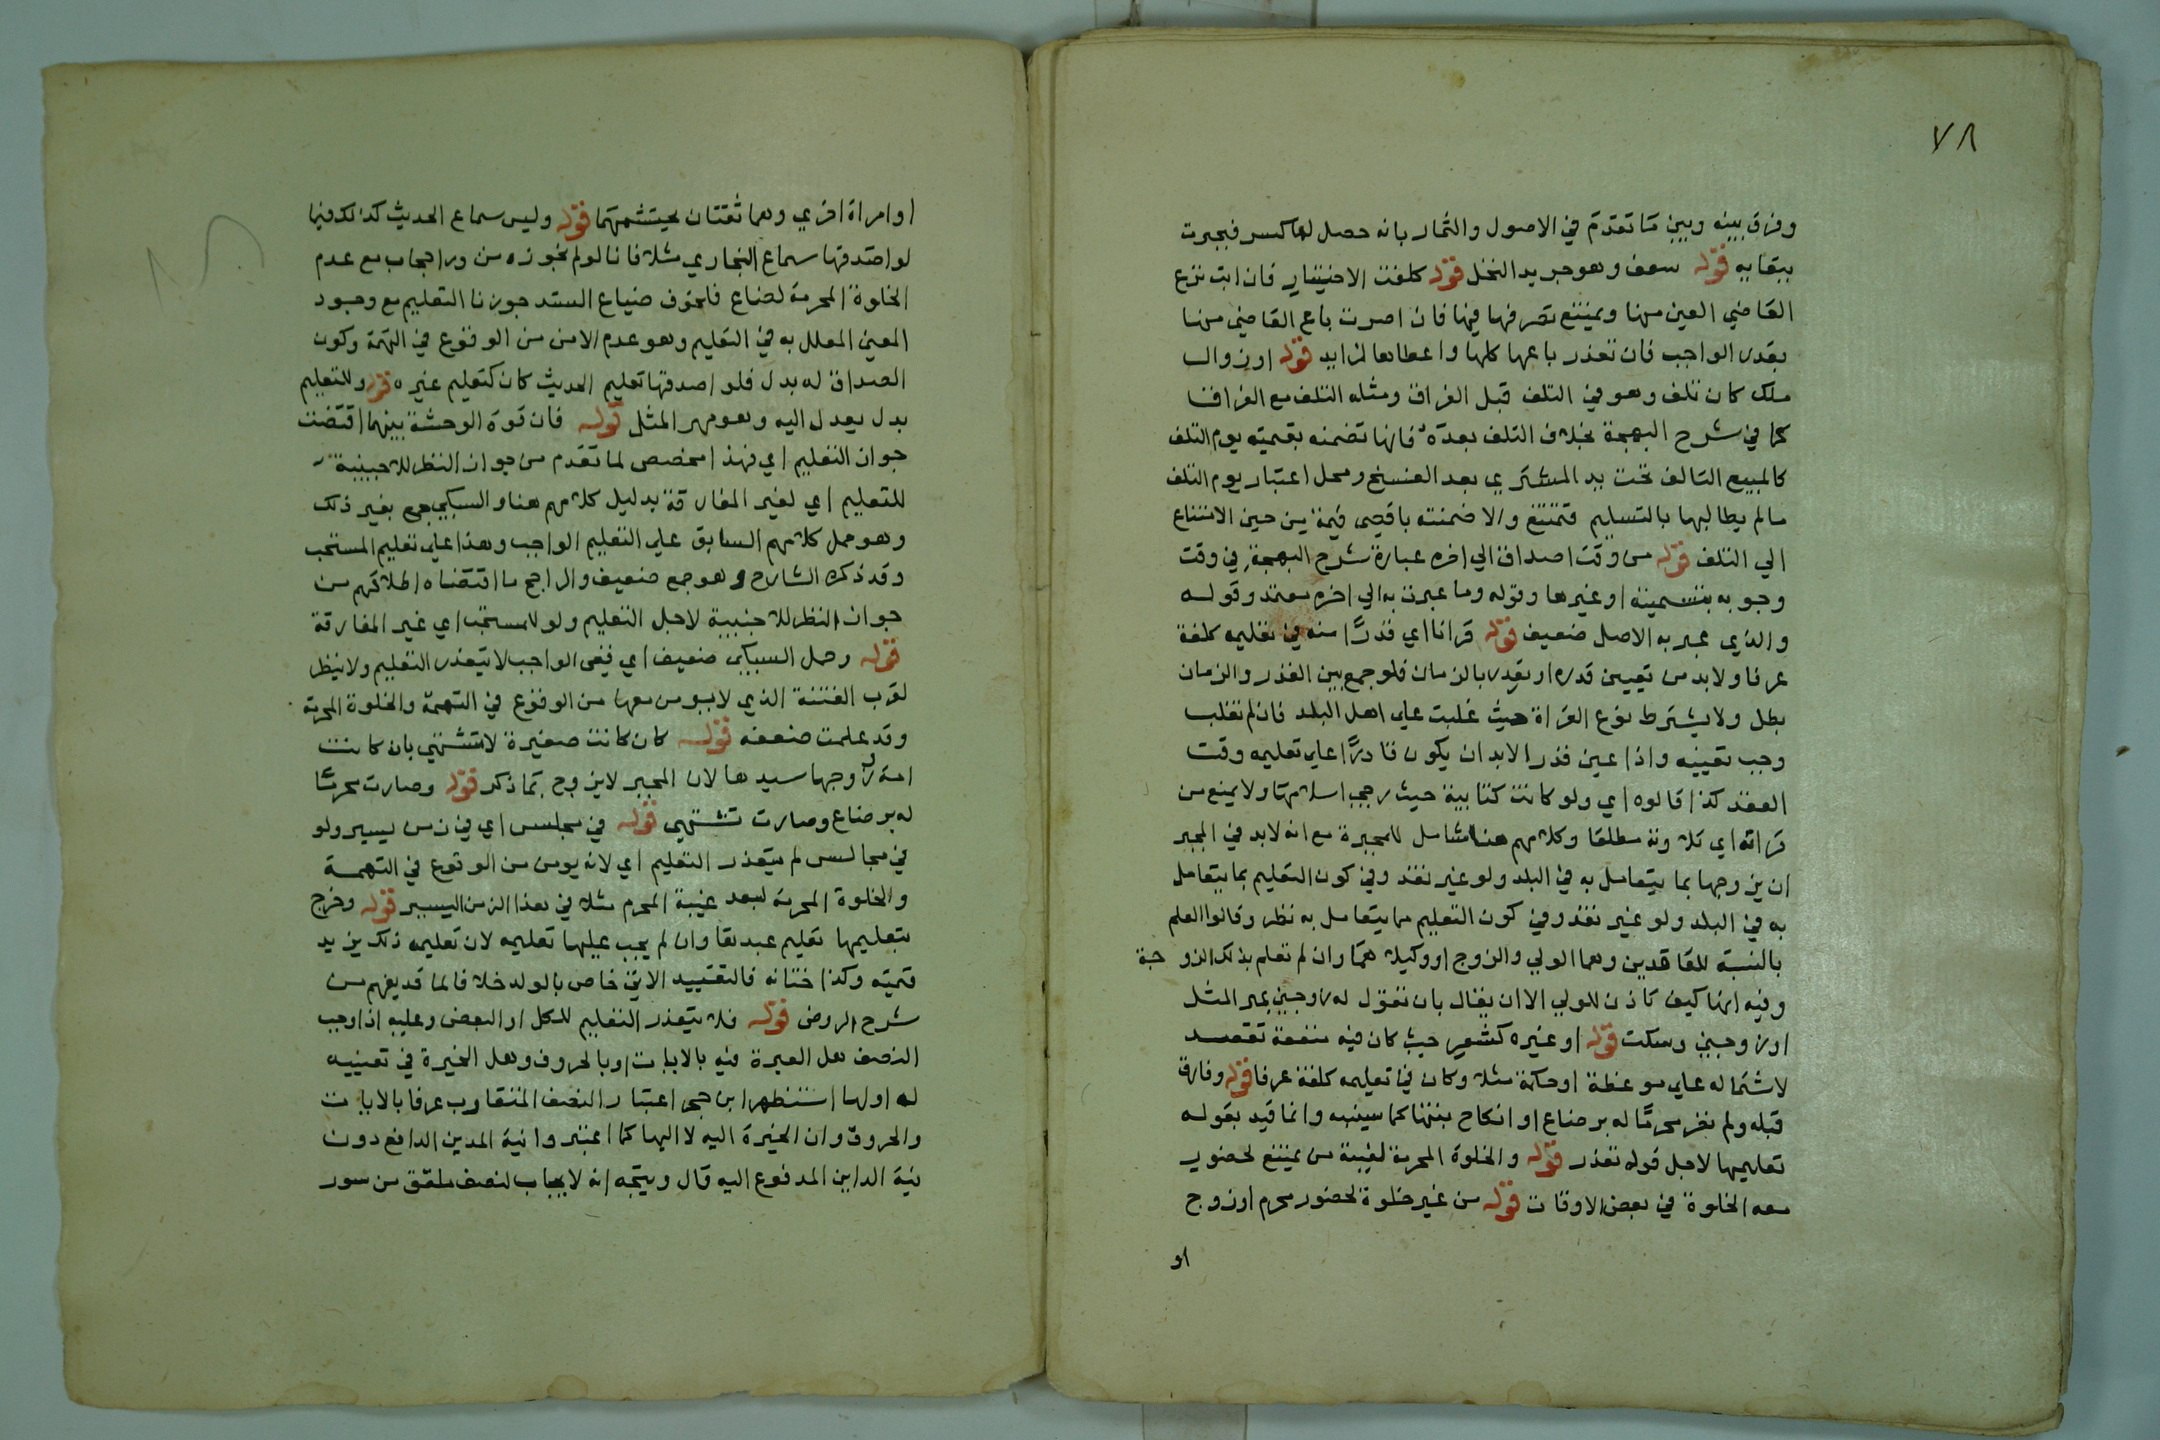 ٧٨
وفرق بينه وبين ما تقدم في الاصول والثمار بانه حصل لها كسر فجبرت
ببقايه قوله سعف وهو جريد النخل قوله كلفت الاختيار فان ابت نزع
القاضي العين منها ويمتنع تصرفها فيها فان اصرت باع القاضي منها
بقدر الواجب فان تعذر باعها كلها واعطاها الزايد قوله او زوال
ملك كان تلف وهو في التلف قبل الفراق ومثله التلف مع الفراق
كما في شرح البهجة بخلاف التلف بعده فانها تضمنه بقيمته يوم التلف
كالمبيع التالف تحت يد المشتري بعد الفسخ ومحل اعتبار يوم التلف
ما لم يطالبها بالتسليم فتمتنع والا ضمنته باقصي قيمة من حين الامتناع
الي التلف قوله من وقت اصداق الي اخره عبارة شرح البهجة في وقت
وجوبه بتسميته او غيرها وقوله وما عبرت به الي اخره معتمد وقوله
والذي عبر به الاصل ضعيف قوله قرانا اي قدرًا منه في تعليمه كلفة
عرفا ولا بد من تعيين قدره او تقدره بالزمان فلو جمع بين القدر والزمان
بطل ولا يشترط نوع القراة حيث غلبت علي اهل البلد فان لم تغلب
وجب تعيينه واذا عين قدرا لا بد ان يكون قادرًا علي تعليمه وقت
العقد كذا قالوه اي ولو كانت كتابية حيث رجي اسلامها ولا يمنع من
قراته اي تلاوته مطلقا وكلامهم هنا شامل للمجبرة مع انه لا بد في المجبر
ان يزوجها بما يتعامل به في البلد ولو غير نقد وفي كون التعليم بما يتعامل
به في البلد ولو غير نقد وفي كون التعليم مما يتعامل به نظر وقالوا العلم
بالنسبة للعاقدين وهما الولي والزوج او وكيلاهما وان لم تعلم بذلك الزوجة
وفيه انها كيف تاذن للولي الا ان يقال بان تقول له زوجني بمهر المثل
او زوجني وسكت قوله او غيره كشعر حيث كان فيه منفعة تقصد
لاشتماله علي موعظة او حكمة مثلا وكان في تعليمه كلفة عرفا قوله وفارق
قبله ولم تصر محرمًا له برضاع او انكاح بنتها كما سينبه وانما قيد بقوله
تعليمها لاجل قوله تعذر قوله والخلوة المحرمة لغيبة من يمتنع لحضور
معه الخلوة في بعض الاوقات قوله من غير خلوة لحضور محرم او زوج
او
او امراة اخري وهما ثقتان يحتشمهما قوله وليس سماع الحديث كذلك فيها
لو اصدقها سماع البخاري مثلا فانا لو لم نجوزه من ورا حجاب مع عدم
الخلوة المحرمة لضاع فلخوف ضياع السند جوزنا التعليم مع وجود
المعني المعلل به في التعليم وهو عدم الامن من الوقوع في التهمة وكون
الصداق له بدل فلو اصدقها تعليم الحديث كان كتعليم غيره قوله وللتعليم
بدل يعدل اليه وهو مهر المثل قوله فان قوة الوحشة بينهما اقتضت
جواز التعليم اي فهذا مخصص لما تقدم من جواز النظر للاجنبية
للتعليم اي لغير المفارقة بدليل كلامهم هنا والسبكي جمع بغير ذلك
وهو حمل كلامهم السابق علي التعليم الواجب وهذا علي تعليم المستحب
وقد ذكره الشارح وهو جمع ضعيف والراجح ما اقتضاه اطلاقهم من
جواز النظر للاجنبية لاجل التعليم ولو للمستحب اي غير المفارقة
قوله وحمل السبكي ضعيف اي ففي الواجب لا يتعذر التعليم ولا ينظر
لقرب الفتنة الذي لا يومن معها من الوقوع في التهمة والخلوة المحرمة
وقد علمت ضعفه قوله كان كانت صغيرة لا تشتهي بان كانت
امة زوجها سيدها لان المجبر لا يزوج بما ذكر قوله وصارت محرما
له برضاع وصارت تشتهي قوله في مجلس اي في زمن يسير ولو
في مجالس لم يتعذر التعليم اي لانه يومن من الوقوع في التهمة
والخلوة المحرمة لبعد غيبة المحرم مثلا في هذا الزمن اليسير قوله وخرج
بتعليمها تعليم عبدها وان لم يجب عليها تعليمه لان تعليمه ذلك يزيد
قيمته وكذا ختانه فالتقييد الاتي خاص بالولد خلافا لما قد يفهم من
شرح الروض قوله فلا يتعذر التعليم للكل او البعض وعليه اذا وجب
النصف هل العبرة فيه بالايات او بالحروف وهل الخيرة في تعيينه
له او لها استظهر ابن حجر اعتبار النصف المتقارب عرفا بالايات
والحروف وان الخيرة اليه لا اليها كما اعتبروا نية المدين الدافع دون
نية الداين المدفوع اليه قال ويتجه انه لا يجاب لنصف ملفق من سور